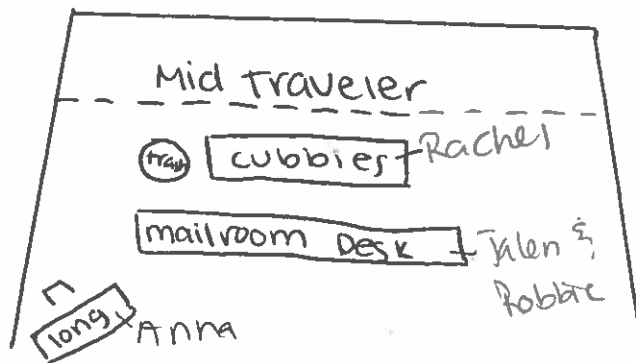 Mid Traveler
trash
cubbies
Rachel
mailroom Desk
Jalen &
Robbie
long
Anna